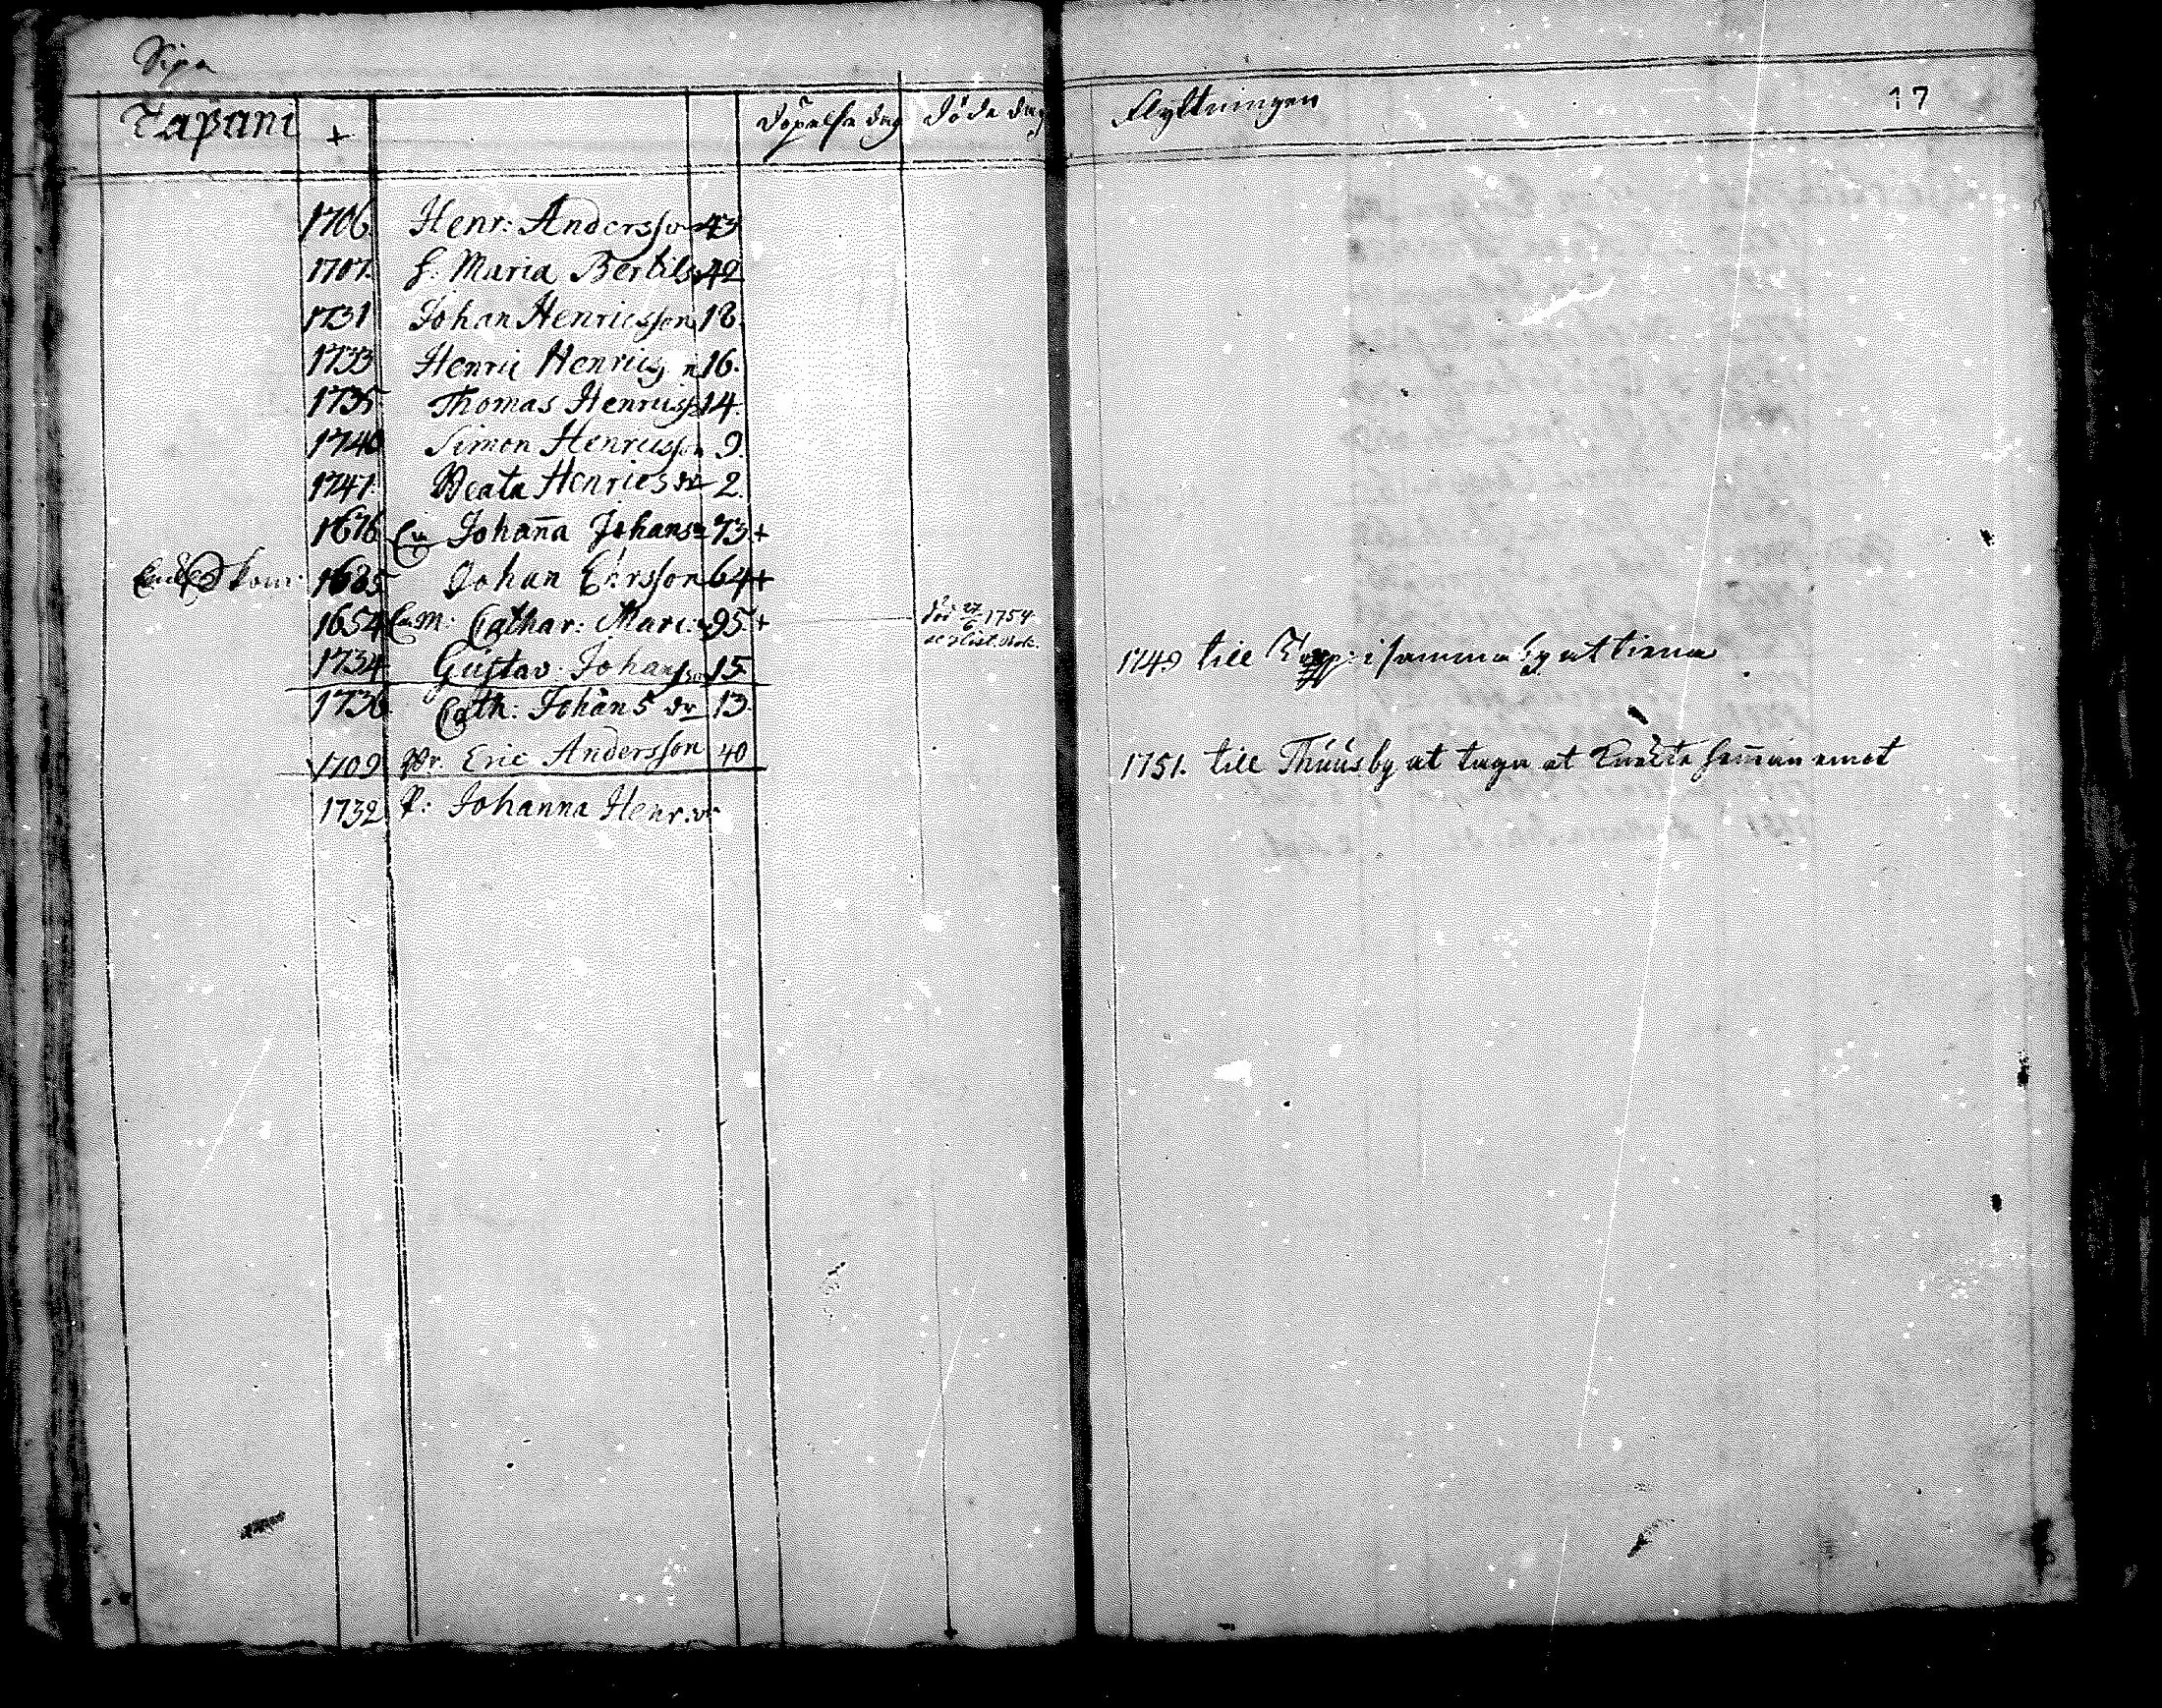 Sipa
Tapani + Döpelse dag Döde dag Flyttningen 17
1706. Henr: Andersson 43
1707. h: Maria Bertils 42
1731 Johan Henricsson 18.
1733 Henric Henrics n 16.
1735 Thomas Henricss 14.
1740 Simon Henricsson 9.
1747. Beata Henrics dr 2.
1676 Johan̄a Johans 73 +
1685 Johan Ersson 64 +
1654 Cathar: Mar. 95 + död 27/6 1754
1734 Gustav Johansson 15 1749 till i samma by at tiena
1736 Cath: Johans dr 13.
1709 Br. Eric Andersson 40 1751. till Thuusby at taga et hem̄an emot
1732 P: Johanna Henr. dr